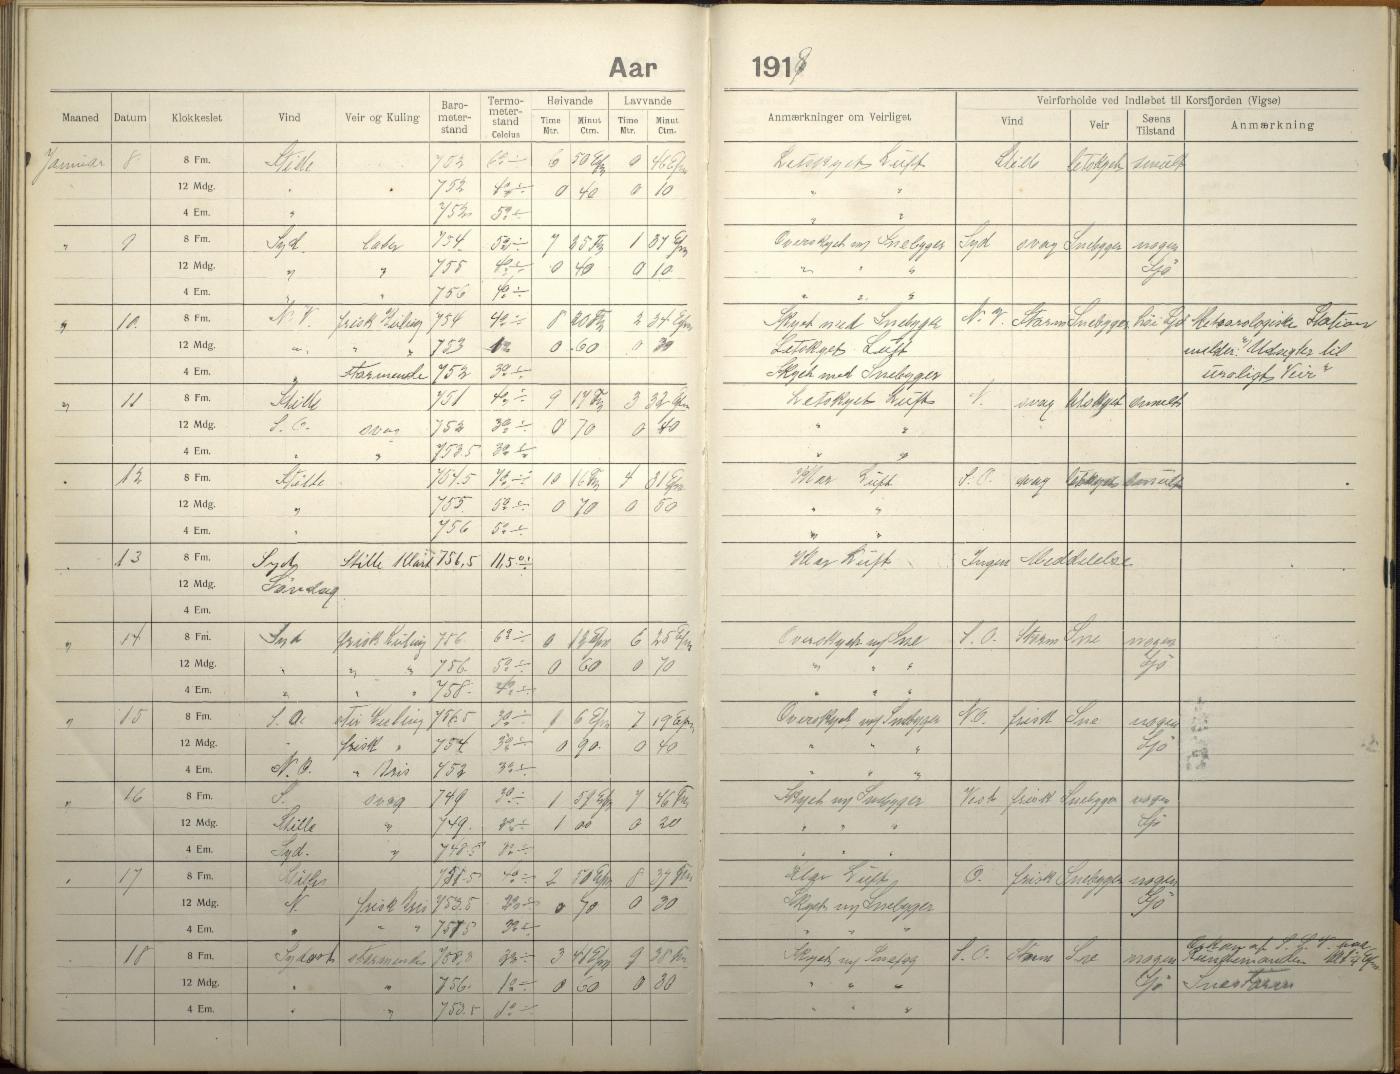 Aar 1918
Maaned Datum Klokkeslet Vind Veir og Kuling Barometerstand Termometerstand Celcius Høivande Time Mtr. Minut Ctm. Lavvande Time Mtr. Minut Ctm. Anmærkninger om Veirliget Veirforholde ved Indløbet til Korsfjorden (Vigsø) Vind Veir Søens Tilstand Anmærkning
Januar 8 8 Fm. Stille 752 6 50 Efm 0 46 Efm Letskyet Luft Stille letskyet smult
12 Mdg. " " 752 0 40 0 10 " "
4 Em. " 752 " "
" 9 8 Fm. Syd laber 754 7 35 Fm 1 37 Efm Overskyet m/ Snebyger Syd svag Snebyger nogen
12 Mdg. " " 755 0 40 0 10 " " " Sjö
4 Em. " 756 " " "
" 10 8 Fm. N. V. frisk Kuling 754 8 20 Fm 2 34 Efm Skyet med Snebyger N. V. Storm Snebyger høi Sjö Meteorologiske Station
12 Mdg. " " " 753 0 60 0 30 Letskyet Luft melder: "Udsigter til
4 Em. " stormende 752 Skyet med Snebyger uroligt Veir"
" 11 8 Fm. Stille 751 9 17 Fm 3 32 Efm Letskyet Luft svag letskyet smult
12 Mdg. S. O. svag 752 0 70 0 40 " "
4 Em. " " 753.5 " "
12 8 Fm. Stille 754.5 10 16 Fm 4 31 Efm Klar Luft S. O. svag letskyet smult
12 Mdg. " 755 0 70 0 50 " "
4 Em. " 756 " "
13 8 Fm. Syd Stille Klart 756,5 11,5 Klar Luft Ingen Meddelelse
12 Mdg. Søndag
4 Em.
" 14 8 Fm. Syd frisk Kuling 756 0 12 Efm 6 25 Efm Overskyet m/ Sne S. O. Storm Sne nogen
12 Mdg. " " " 756 0 60 0 70 " " " Sjö
4 Em. " " " 758 " " "
" 15 8 Fm. S. O. Kuling 756.5 1 6 Efm 7 19 Efm Overskyet m/ Snebyger N.O. frisk Sne nogen
12 Mdg. " frisk " 754 0 90 0 40 " " " Sjö
4 Em. N. O. " Bris 752 " " "
" 16 8 Fm. S. svag 749 1 59 Efm 7 46 Fm Skyet m/ Snebyger Vest frisk Snebyger nogen
12 Mdg. Stille " 749 1 00 0 20 " " " Sjö
4 Em. Syd. " 748.5 " " "
17 8 Fm. Stille 2 50 Efm 8 37 Fm Luft O. frisk Snebyger nogen
12 Mdg. N. frisk Bris 753.5 0 70 0 30 Skyet m/ Snebyger Sjö
4 Em. " " " " " "
18 8 Fm. Sydost stormende 3 41 Efm 9 38 Fm Skyet m/ S. O. Storm Sne nogen
12 Mdg. " " 756 0 60 0 30 " " " Sjö Snestorm
4 Em. " " 753.5 " " "